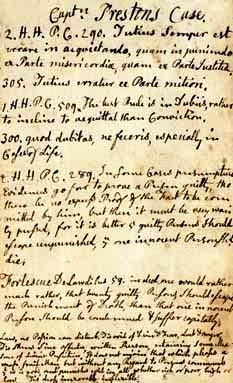 Captn. Prestons Case.
2. H. H. P. C. 290. Tutius semper est
errare in acquietando, quam in puniendo
ex Parte misericordiæ, quam ex Parte Justitiæ.
305. Tutius erratur ex Parte mitiori,
1 H H P. C. 509. The best Rule is in Dubiis, rather
to incline to acquittal than Conviction.
300. quod dubitas, ne feceris, especially in
Cases of Life.
2. H. H. P. C. 289. In some Cases presumptive
Evidences go far to prove a Person guilty, tho
there be no express Proof of the Fact to be com
mitted by him, but then it must be very warily
pressed, for it is better 5 guilty Persons should
escape unpunished, than one innocent Person should
die,
Fortescue De Laudibus 59. indeed one would rather
much rather, that twenty guilty Persons should escape
the Punishment of Death, than that one innocent
Person should be condemned, & suffer capitally.